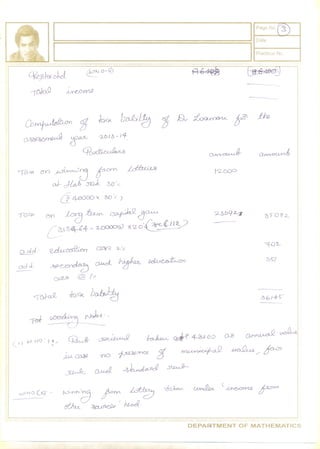 Page No. 3
Date
Practical No.
(2010-11)
Total income
Computation of tax liability of Dr Laxman for the
assessment year 2013-14
Particulars amount amount
Tax on winning from lotteries 12000
at flat rate 30%
(40000 x 30%)
Tax on long term capital gain 35092
- 200000) x 20%
add education cess 2% 702
add secondary and higher education 351
cess @ 1%
Total tax liability 36145
working notes :-
Rent received taken 43200 as annual value
in case no presence of municipal value, fair
rent and standard rent
winning from lottery taken under 'income from
other sources' head
DEPARTMENT OF MATHEMATICS